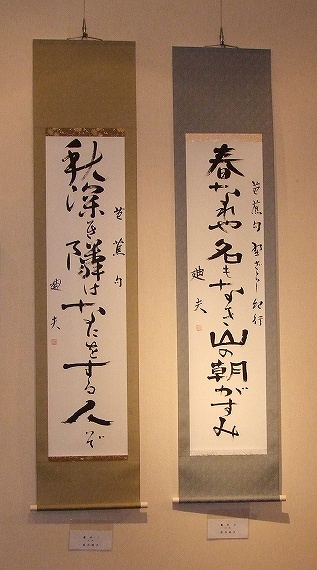 芭蕉句 野ざらし紀行
春なれや名もなき山の朝がすみ
迪夫
芭蕉句
秋深き隣はなにをする人ぞ
迪夫